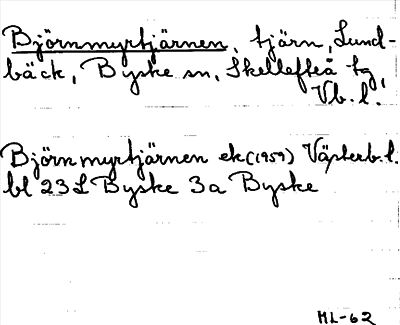 Björnmyrtjärnen, tjärn, Lund-
bäck, Byske sn, Skellefteå tg,
Vb. l.
Björnmyrtjärnen ek (1959) Västerb. l.
bl 23L Byske 3a Byske
HL-62